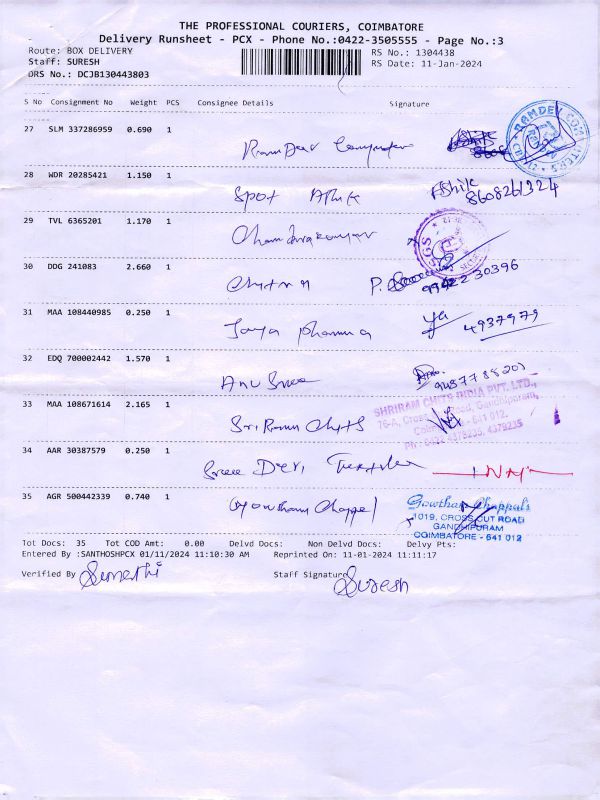 THE PROFESSIONAL COURIERS, COIMBATORE
Delivery Runsheet - PCX - Phone No.:0422-3505555 - Page No.:3
Route: BOX DELIVERY RS No.: 1304438
Staff: SURESH RS Date: 11-Jan-2024
DRS No.: DCJB130443803
S No Consignment No Weight PCS Consignee Details Signature
27 SLM 337286959 0.690 1
RamDev Computer
RAMDEV COMPUTERS
28 WDR 20285421 1.150 1
Spot AShik
8608261324
29 TVL 6365201 1.170 1
Chandrakumar
30 DDG 241083 2.660 1
Chitra
31 MAA 108440985 0.250 1
Jaya pharma
4937979
32 EDQ 700002442 1.570 1
Anu Sree
33 MAA 108671614 2.165 1
Sri Ram Chits
SHRIRAM CHITS INDIA PVT. LTD.,
76-A, Cross Gandhipuram,
641 012.
Ph : 0422 4378235, 4379235
34 AAR 30387579 0.250 1
Sree Devi Textiles
35 AGR 500442339 0.740 1
Gowtham Chappel
Gowtham Chappals
1019, CROSS CUT ROAD
GANDHIPURAM
COIMBATORE - 641 012
Tot Docs: 35 Tot COD Amt: 0.00 Delvd Docs: Non Delvd Docs: Delvy Pts:
Entered By :SANTHOSHPCX 01/11/2024 11:10:30 AM Reprinted On: 11-01-2024 11:11:17
Verified By Sumathi Staff Signature Suresh